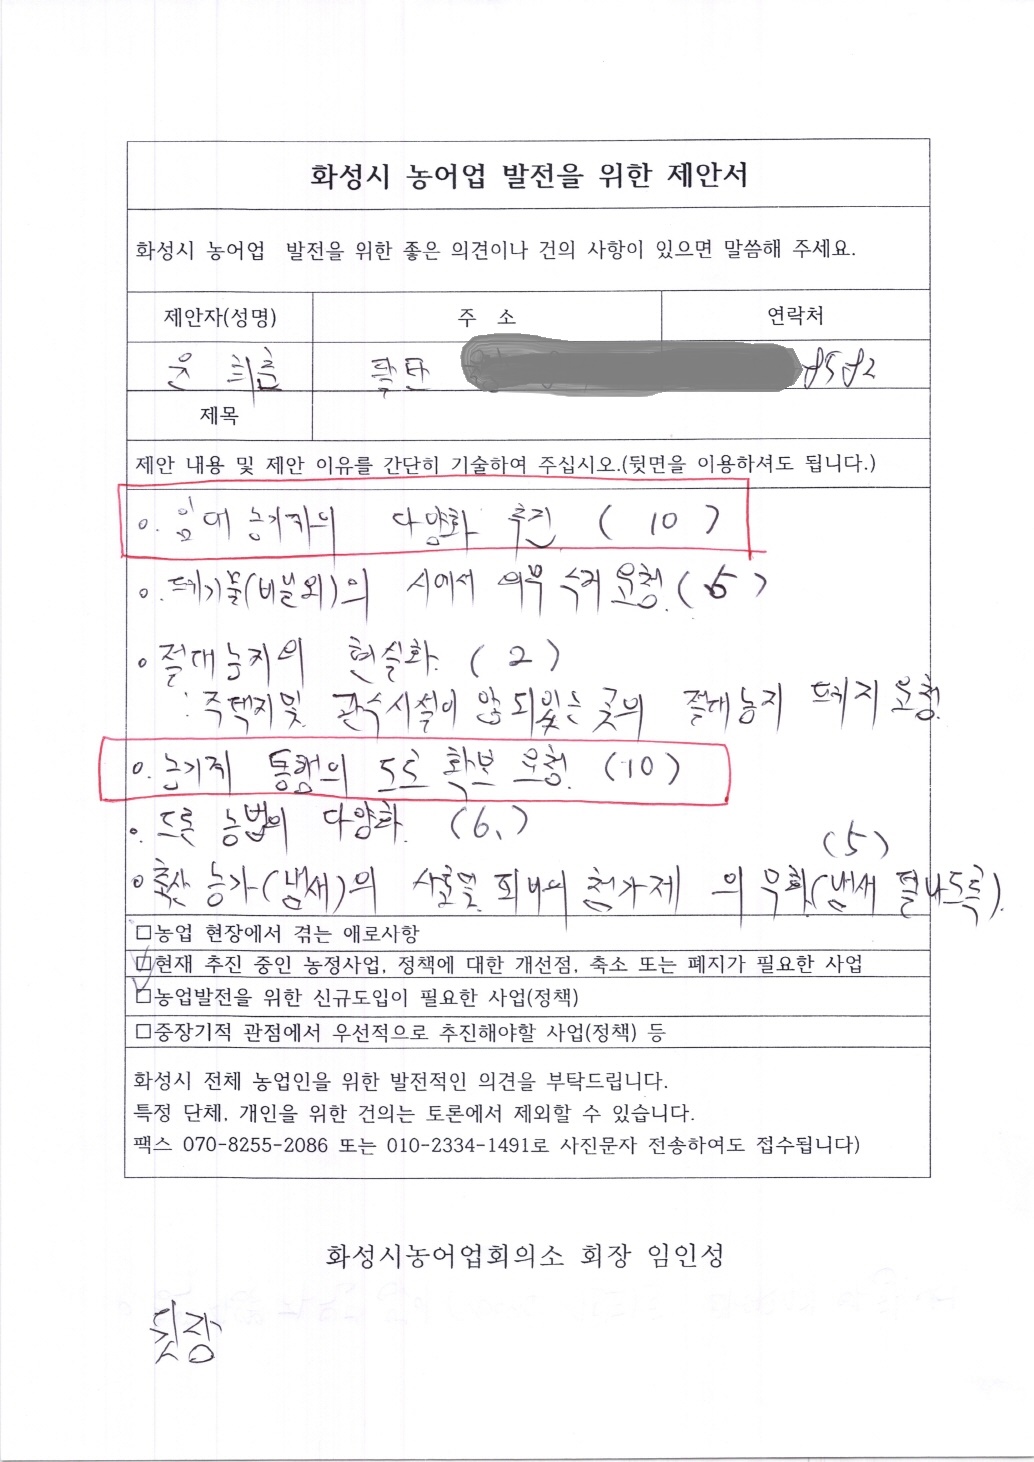 화성시 농어업 발전을 위한 제안서
화성시 농어업 발전을 위한 좋은 의견이나 건의 사항이 있으면 말씀해 주세요.
제안자(성명) 주 소 연락처
윤 희준 팔탄 8582
제목
제안 내용 및 제안 이유를 간단히 기술하여 주십시오.(뒷면을 이용하셔도 됩니다.)
o. 임대 농기계의 다양화 추진 ( 10 )
o. 폐기물(비닐외)의 시에서 의무 수거 요청. ( 5 )
o 절대농지의 현실화. ( 2 )
: 주택지및 관수시설이 않되있는 곳의 절대농지 폐지 요청.
o. 농기계 통행의 도로 확보 요청. (10)
o. 드론 농법의 다양화. (6.)
(5)
o 축산 농가(냄새)의 사료및 퇴비의 첨가제 의 무화(냄새 덜나도록).
□농업 현장에서 겪는 애로사항
□현재 추진 중인 농정사업, 정책에 대한 개선점, 축소 또는 폐지가 필요한 사업
□농업발전을 위한 신규도입이 필요한 사업(정책)
□중장기적 관점에서 우선적으로 추진해야할 사업(정책) 등
화성시 전체 농업인을 위한 발전적인 의견을 부탁드립니다.
특정 단체, 개인을 위한 건의는 토론에서 제외할 수 있습니다.
팩스 070-8255-2086 또는 010-2334-1491로 사진문자 전송하여도 접수됩니다)
화성시농어업회의소 회장 임인성
뒷장